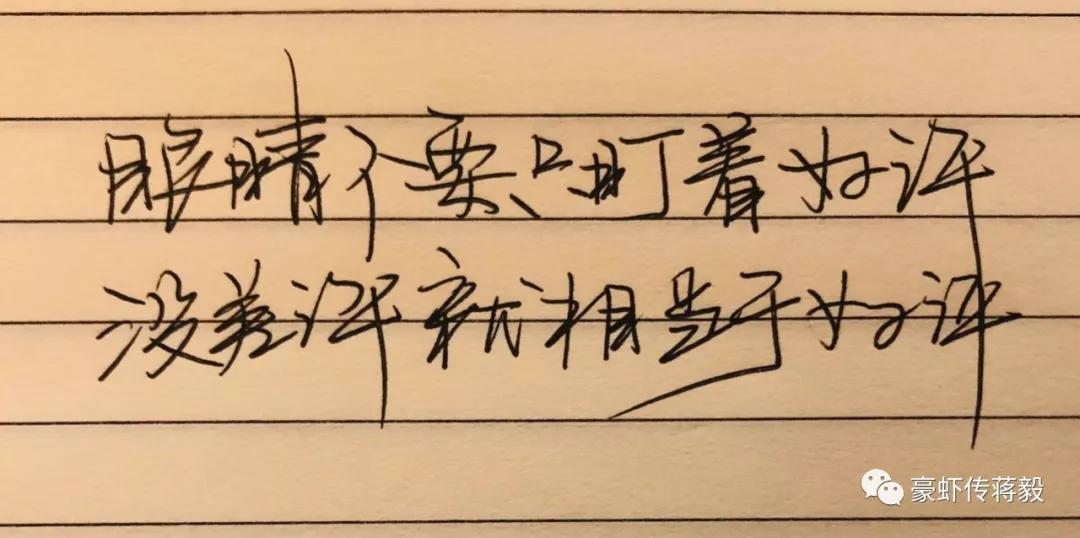 眼睛不要只盯着好评
没差评就相当于好评
豪虾传蒋毅